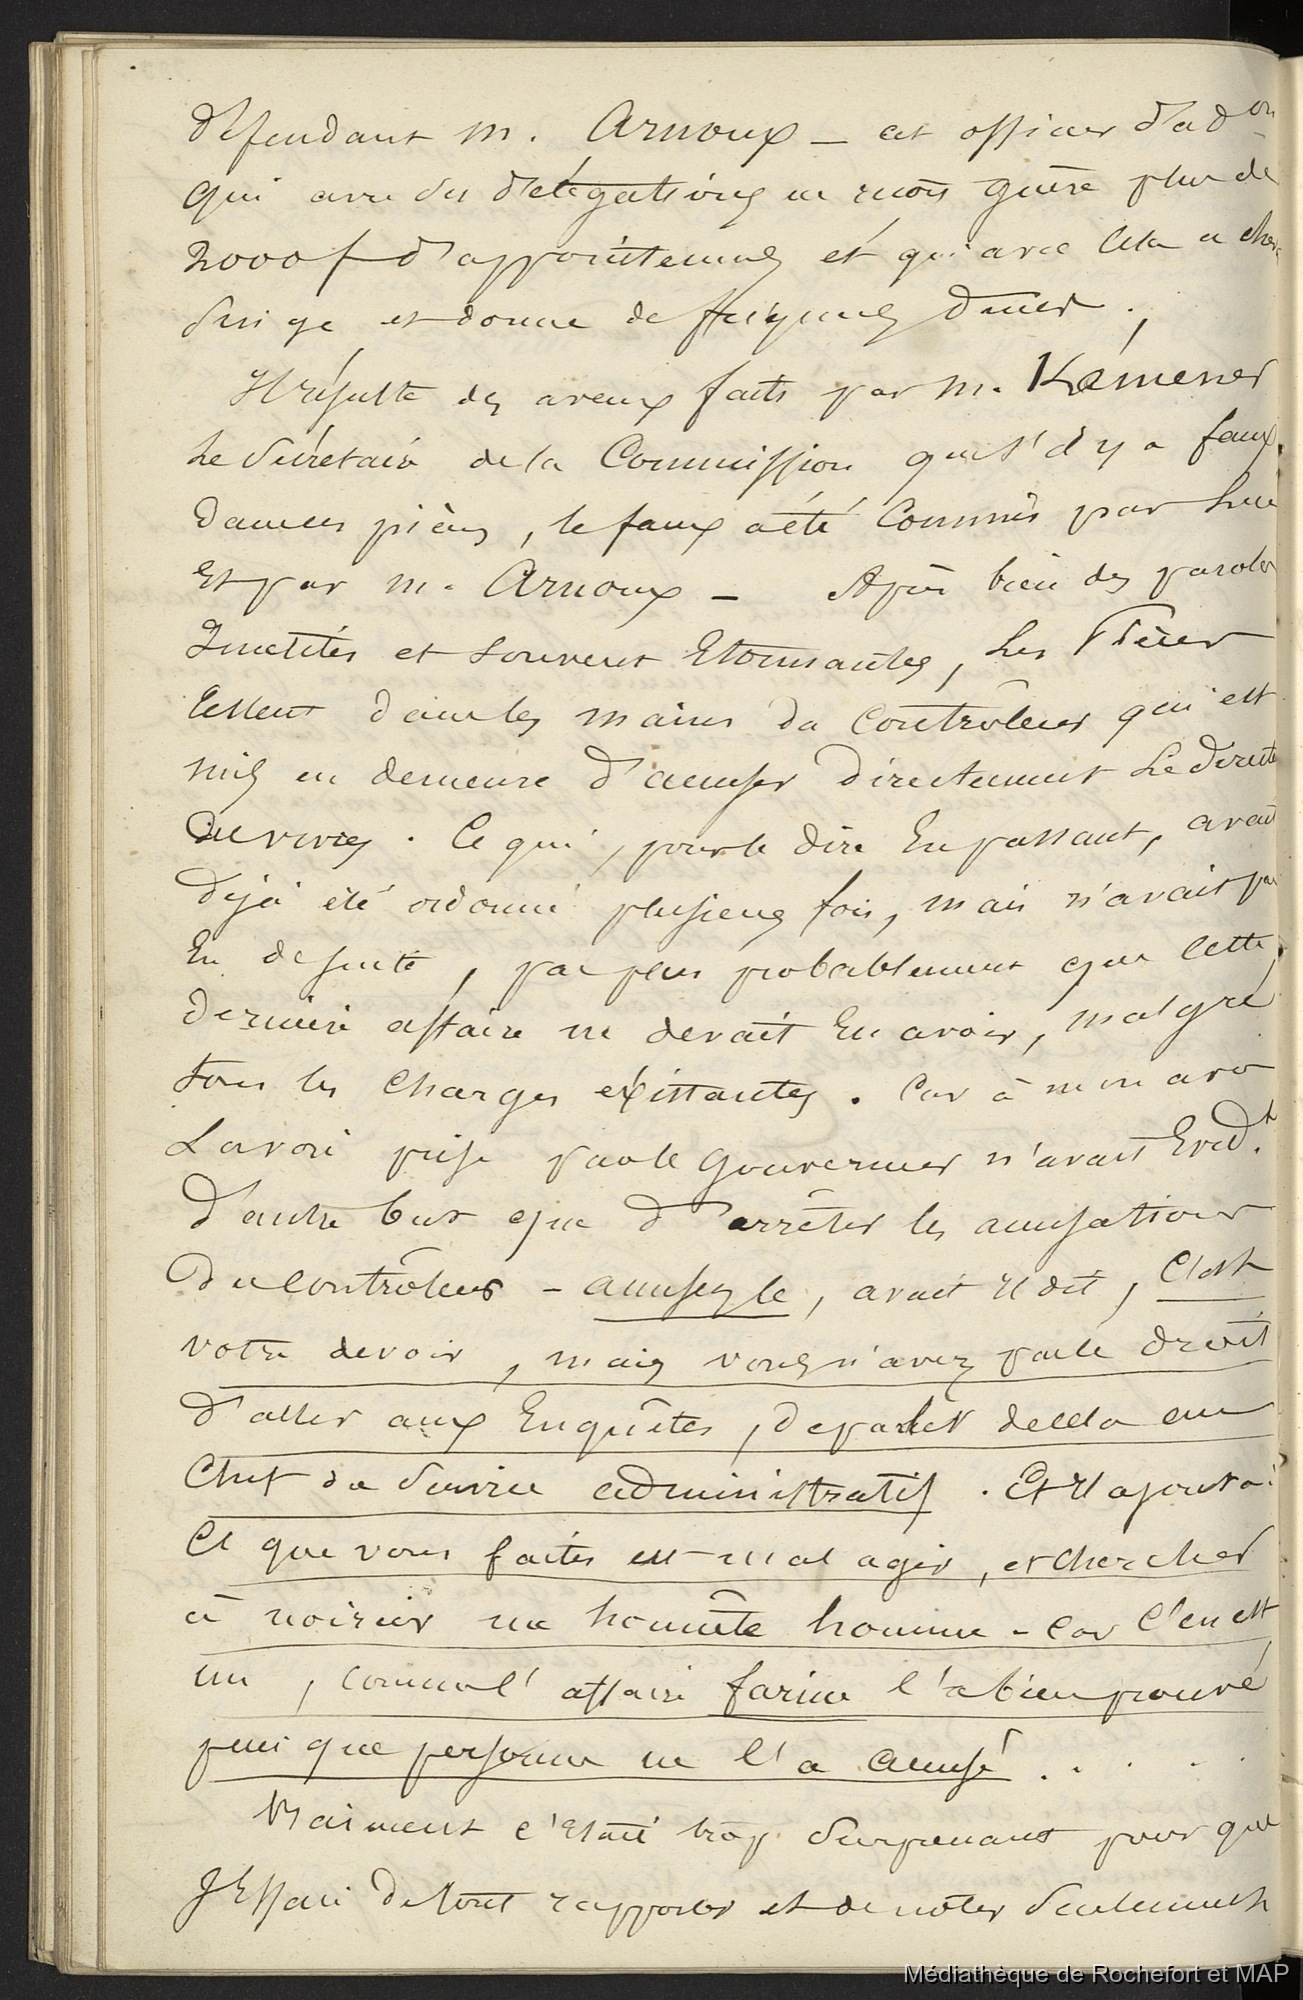 défendant M. Arnoux – cet officier d'ad on
qui avec des délégations ne reçoit guère plus de
2000 f d'appointements et qui avec cela a cheva
singe et donne de fréquens diners.,
Il résulte des aveux faits par M. Kémener
le Sécrétaire de la Commission que s'il y a faux
dans ces pièces, le faux a été Commis par lui
Et par M. Arnoux – Après bien des paroles
Inutiles et souvent Etonnantes, les Pièces
restent dans les mains du Contrôleur qui est
mis en demeure d'accuser directement le directe
des vivres. Ce qui, pour le dire En passant, avait
déjà été ordonné plusieurs fois, mais n'avait pas
Eu de suite, pas plus probablement que cette
dernière affaire ne devait En avoir, malgré
tous les Charges existantes. Car à mon avis
La voie prise par le Gouverneur n'avait Evidt.
d'autre but que d'arrêter les accusations
du Contrôleur – accusez le, avait Il dit, C'est
votre devoir, mais vous n'avez pas le droit
d'aller aux Enquêtes, de parler de cela au
Chef du Service administratif. Et Il ajouta:
Ce que vous faites est mal agir, et chercher
à noircir un honnête homme – Car C'en est
un, comme l'affaire farine l'a bien prouvé
puisque personne ne l'a accusé. . . . .
Vraiment c'était trop Surprenant pour que
J'Essaie de tout rapporter et de noter Seulement
Médiathèque de Rochefort et MAP